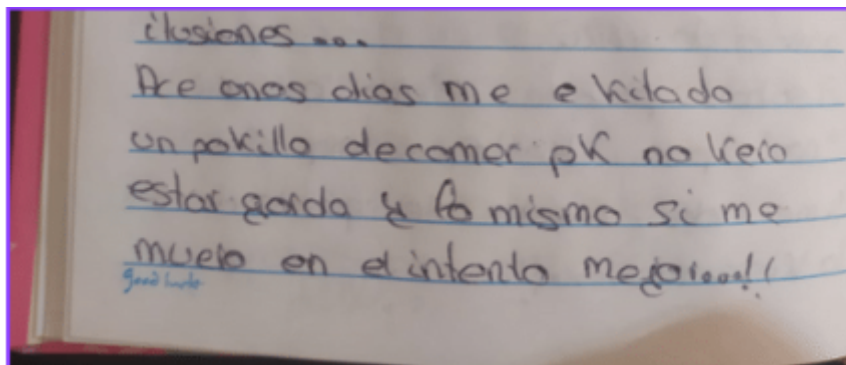 ilusiones...
Ace onos dias me e kitado
un pokillo de comer pk no keio
estar gorda y lo mismo si me
muelo en el intento mejor...!!